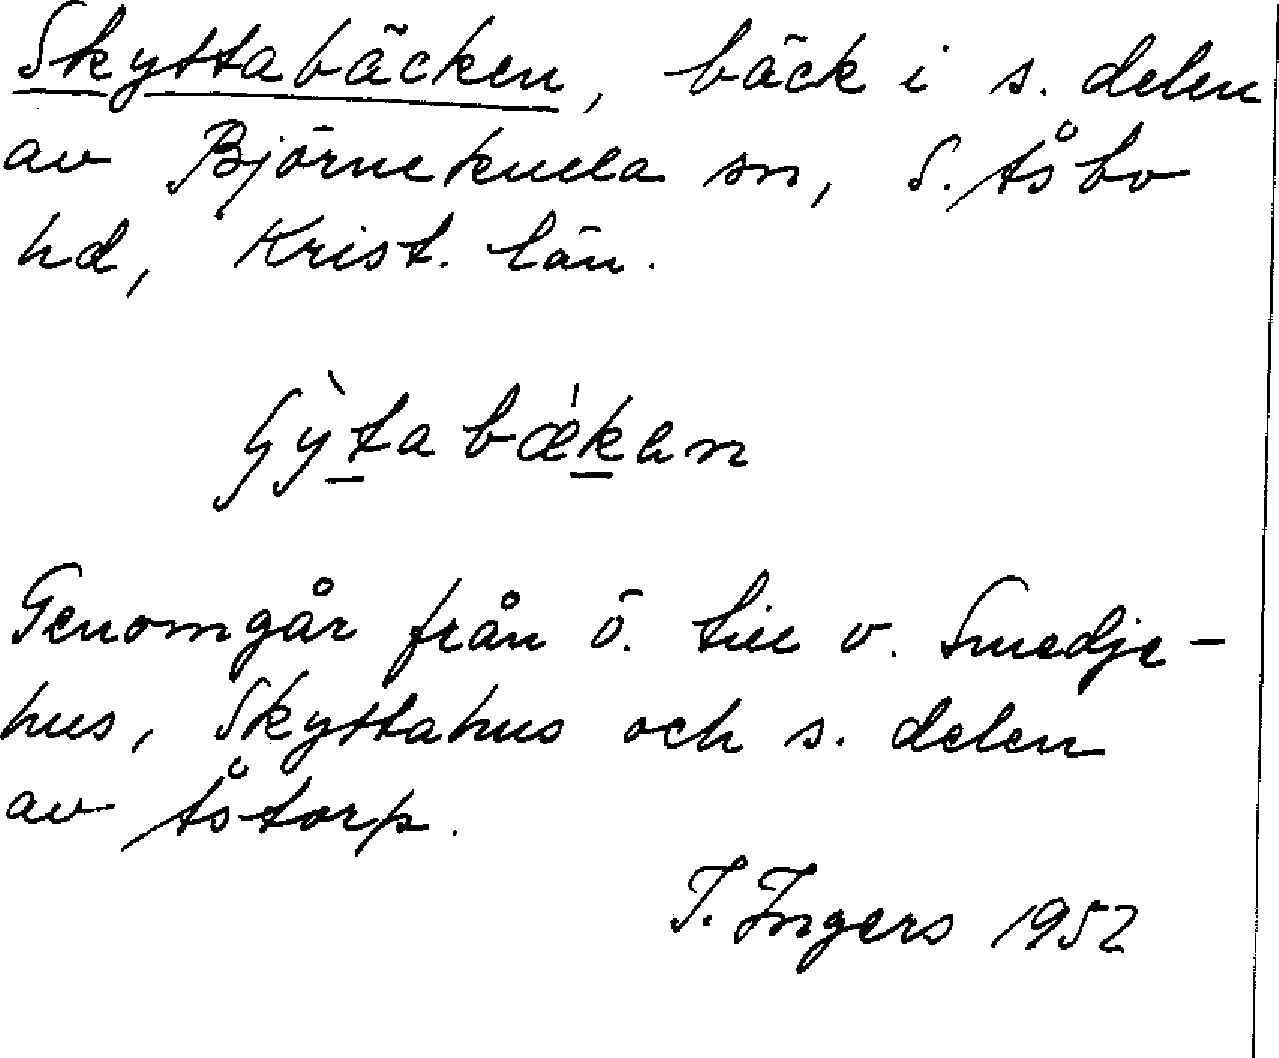 Skyttabäcken, bäck i s. delen
av Björnekulla sn, S. Åsbo
hd, Krist. län.
Genomgår från ö. till v. Smedje-
hus, Skyttahus och s. delen
av Åstorp.
I. Ingers 1952